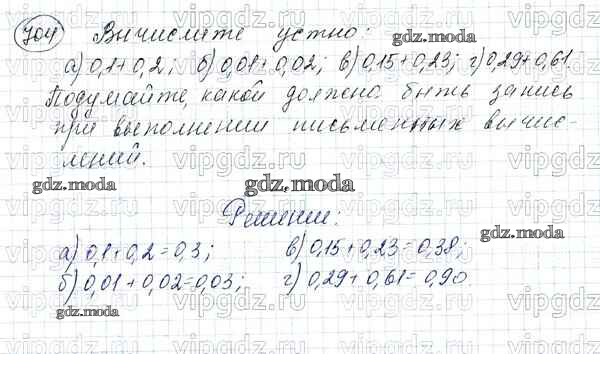 704 Вычислите устно: gdz.moda
а) 0,1+0,2; б) 0,01+0,02; в) 0,15+0,23; г) 0,29+0,61.
Подумайте, какой должна быть запись
при выполнении письменных вычис-
лений.
gdz.moda gdz.moda
Решение: gdz.moda
а) 0,1+0,2=0,3; в) 0,15+0,23=0,38;
б) 0,01+0,02=0,03; г) 0,29+0,61=0,90.
gdz.moda gdz.moda
vipgdz.ru